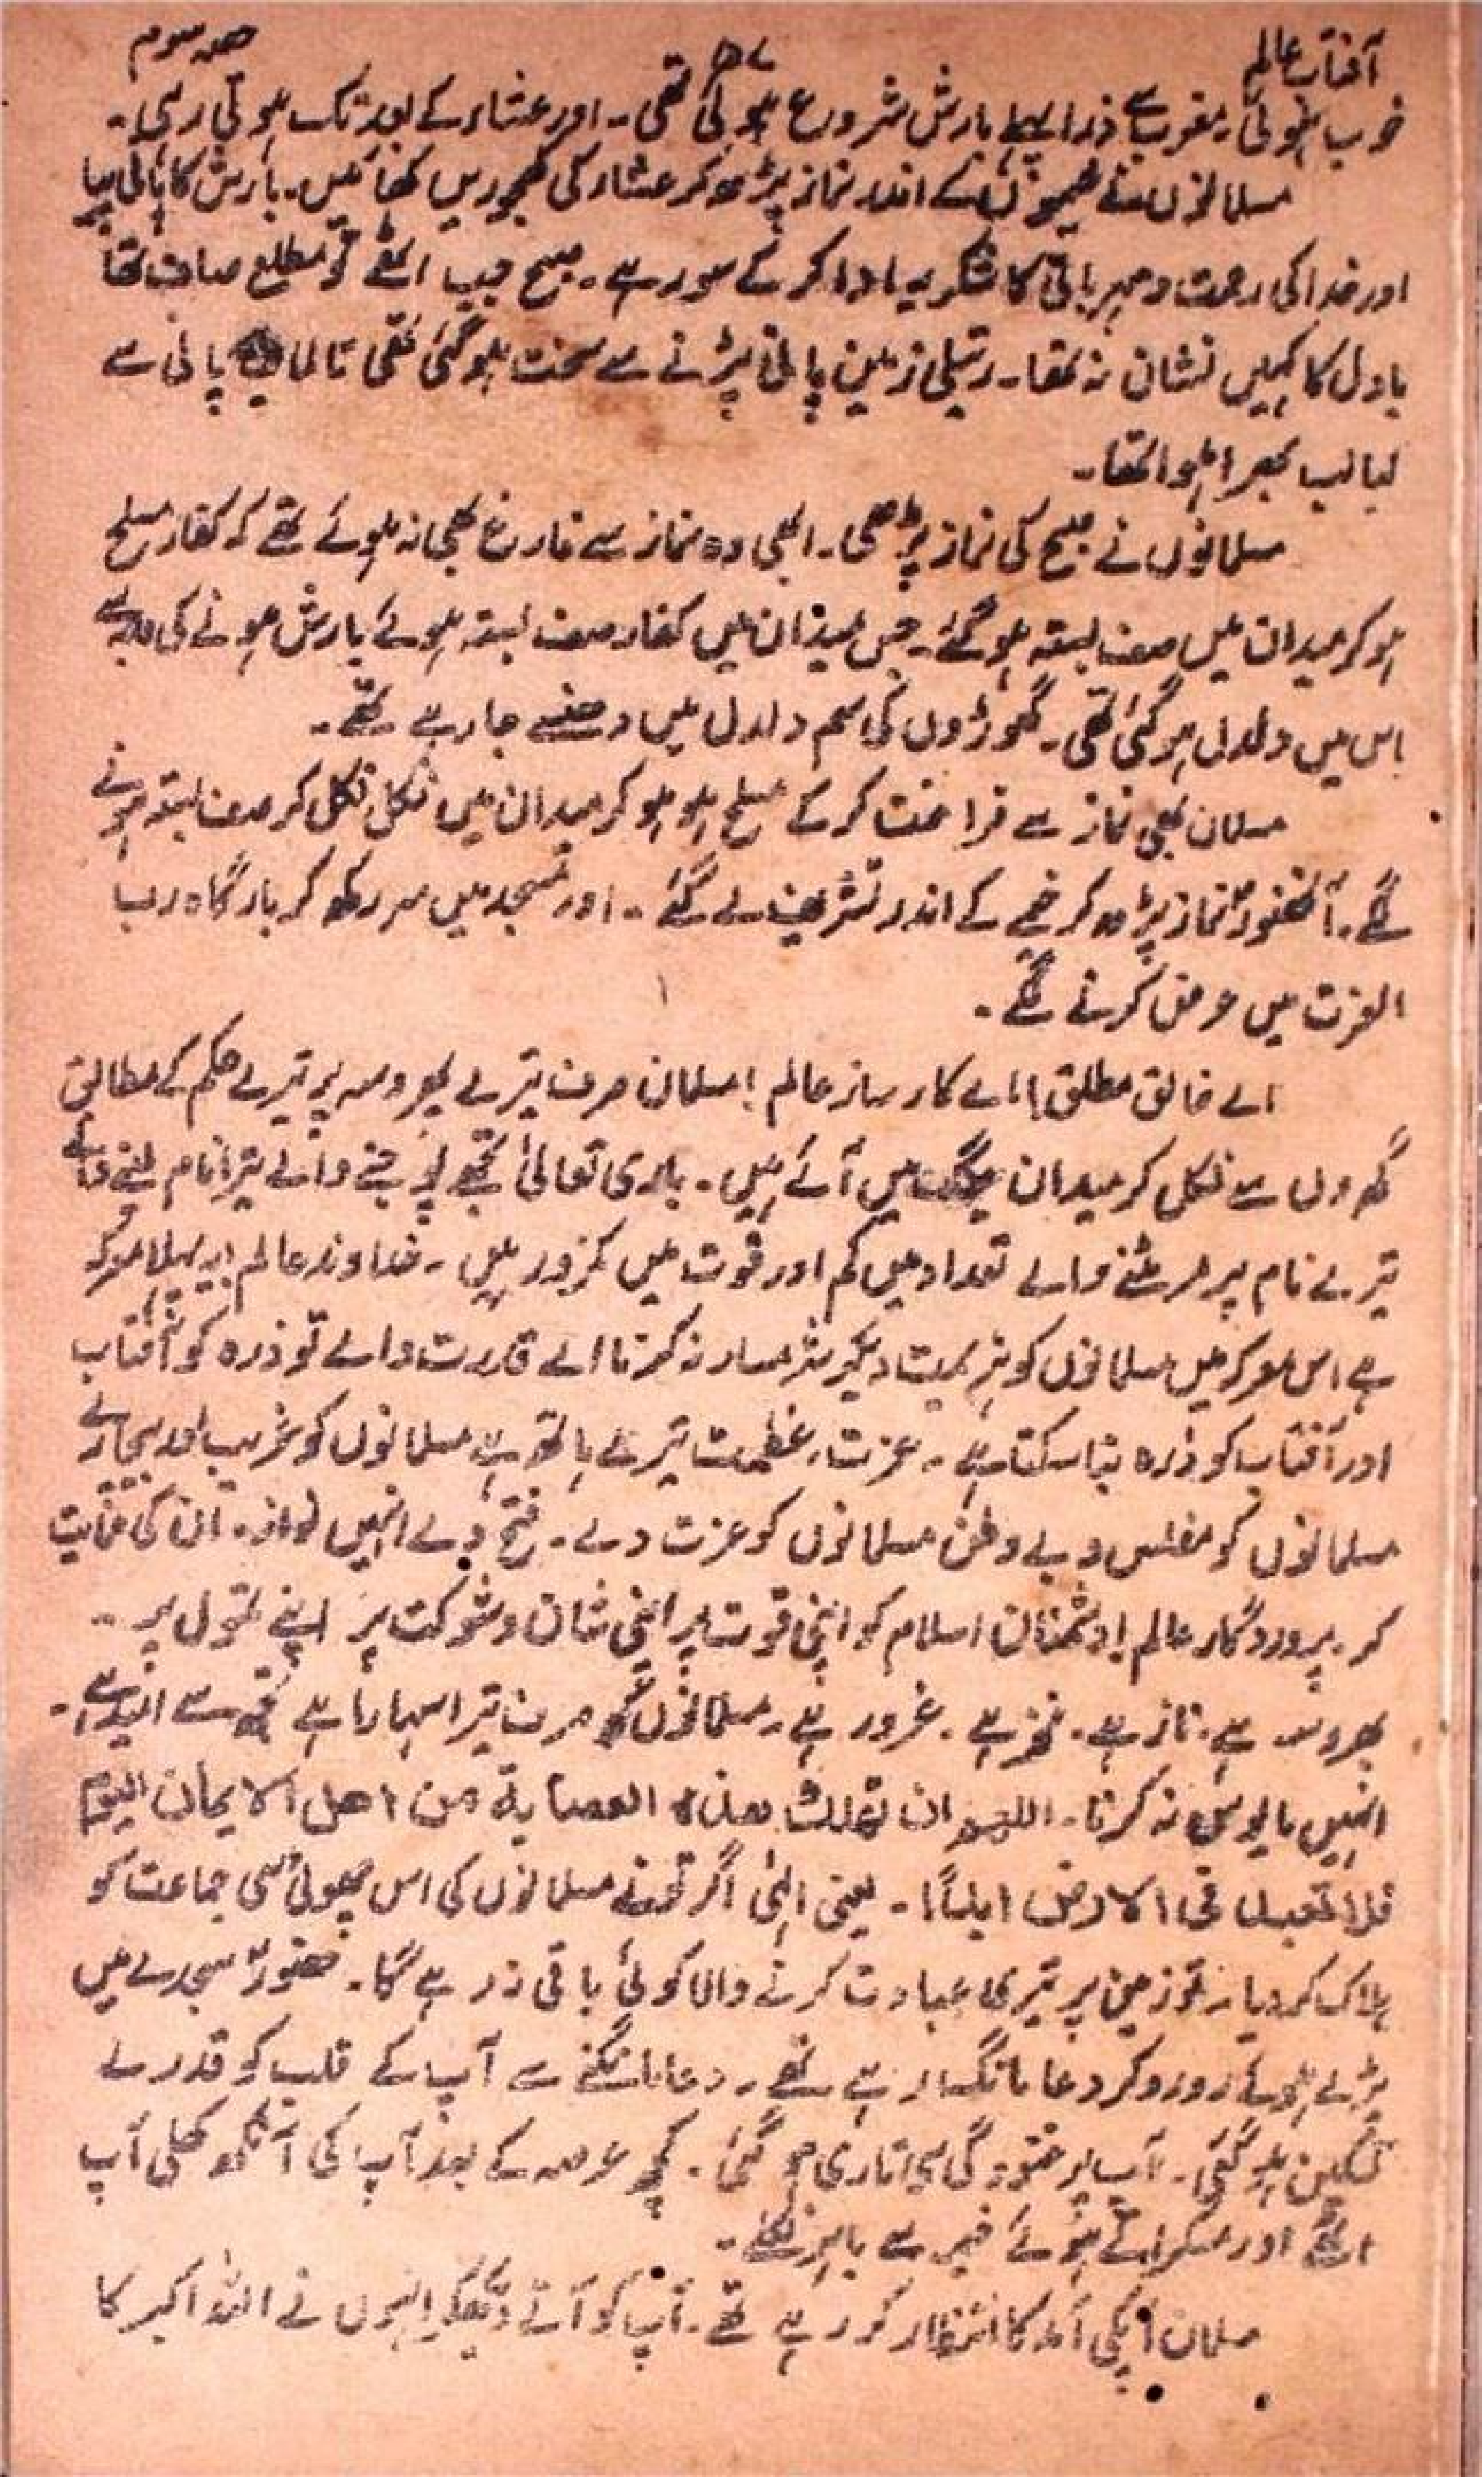 آفتاب عالم ۵۷ حصہ سوم
خوب ہوئی۔ مغرب سے ذرا پہلے بارش شروع ہوئی تھی۔ اور عشاء کے بعد تک ہوتی رہی۔
مسلمانوں نے خیموں کے اندر نماز پڑھ کر عشاء کی کھجوریں کھائیں۔ بارش کا پانی پیا
اور خدا کی رحمت و مہربانی کا شکریہ ادا کر کے سو رہے۔ صبح جب اٹھے تو مطلع صاف تھا
بادل کا کہیں نشان نہ تھا۔ رتیلی زمین پانی پڑنے سے سخت ہو گئی تھی تالاب پانی سے
لبالب بھرا ہوا تھا۔
مسلمانوں نے صبح کی نماز پڑھی۔ ابھی وہ نماز سے فارغ بھی نہ ہوئے تھے کہ کفار مسلح
ہو کر میدان میں صف بستہ ہو گئے۔ جس میدان میں کفار صف بستہ ہوئے بارش ہونے کی وجہ سے
اس میں دلدل ہو گئی تھی۔ گھوڑوں کی سم دلدل میں دھنسے جا رہے تھے۔
مسلمان بھی نماز سے فراغت کر کے مسلح ہو ہو کر میدان میں نکل نکل کر صف بستہ ہونے
لگے۔ آنحضورؐ نماز پڑھ کر خیمے کے اندر تشریف لے گئے۔ اور سجد میں سر رکھ کر بارگاہ رب
العزت میں عرض کرنے لگے۔
اے خالق مطلق! اے کارساز عالم! مسلمان صرف تیرے بھروسہ پر تیرے حکم کے مطابق
گھروں سے نکل کر میدان جنگ میں آئے ہیں۔ باری تعالیٰ تجھے پوجنے والے تیرا نام لینے والے
تیرے نام پر مر مٹنے والے تعداد میں کم اور قوت میں کمزور ہیں۔ خداوند عالم! یہ پہلا معرکہ
ہے اس معرکہ میں مسلمانوں کو ہزیمت دیکر شرمسار نہ کرنا اے قدرت والے تو ذرہ کو آفتاب
اور آفتاب کو ذرہ بنا سکتا ہے۔ عزت، عظمت تیرے ہاتھ ہے مسلمانوں کو غریب اور بیچارے
مسلمانوں کو مفلس و بے وطن مسلمانوں کو عزت دے۔ فتح دے انہیں نواز۔ ان کی حمایت
کر۔ پروردگار عالم! دشمنان اسلام کو اپنی قوت پر اپنی شان و شوکت پر اپنے تمول پر۔
بھروسہ ہے۔ ناز ہے۔ فخر ہے۔ غرور ہے۔ مسلمانوں کو صرف تیرا سہارا ہے تجھ سے امید ہے۔
انہیں مایوس نہ کرنا۔ اللہم ان تھلک ھذہ العصابۃ من اھل الایمان الیوم
فلا تعبد فی الارض ابداً۔ یعنی الہٰی اگر تو نے مسلمانوں کی اس چھوٹی سی جماعت کو
ہلاک کر دیا۔ تو زمین پر تیری عبادت کرنے والا کوئی باقی نہ رہے گا۔ حضورؐ سجدے میں
پڑے ہوئے رو رو کر دعا مانگ رہے تھے۔ دعا مانگنے سے آپ کے قلب کو قدرے
تسکین ہو گئی۔ آپ پر غنودگی سی تاری ہو گئی۔ کچھ عرصہ کے بعد آپ کی آنکھ کھلی آپ
اٹھے اور مسکراتے ہوئے خیمہ سے باہر نکلے۔
مسلمان آپکی آمد کا انتظار کر رہے تھے۔ آپ کو آتے دیکھ کر انہوں نے اللہ اکبر کا